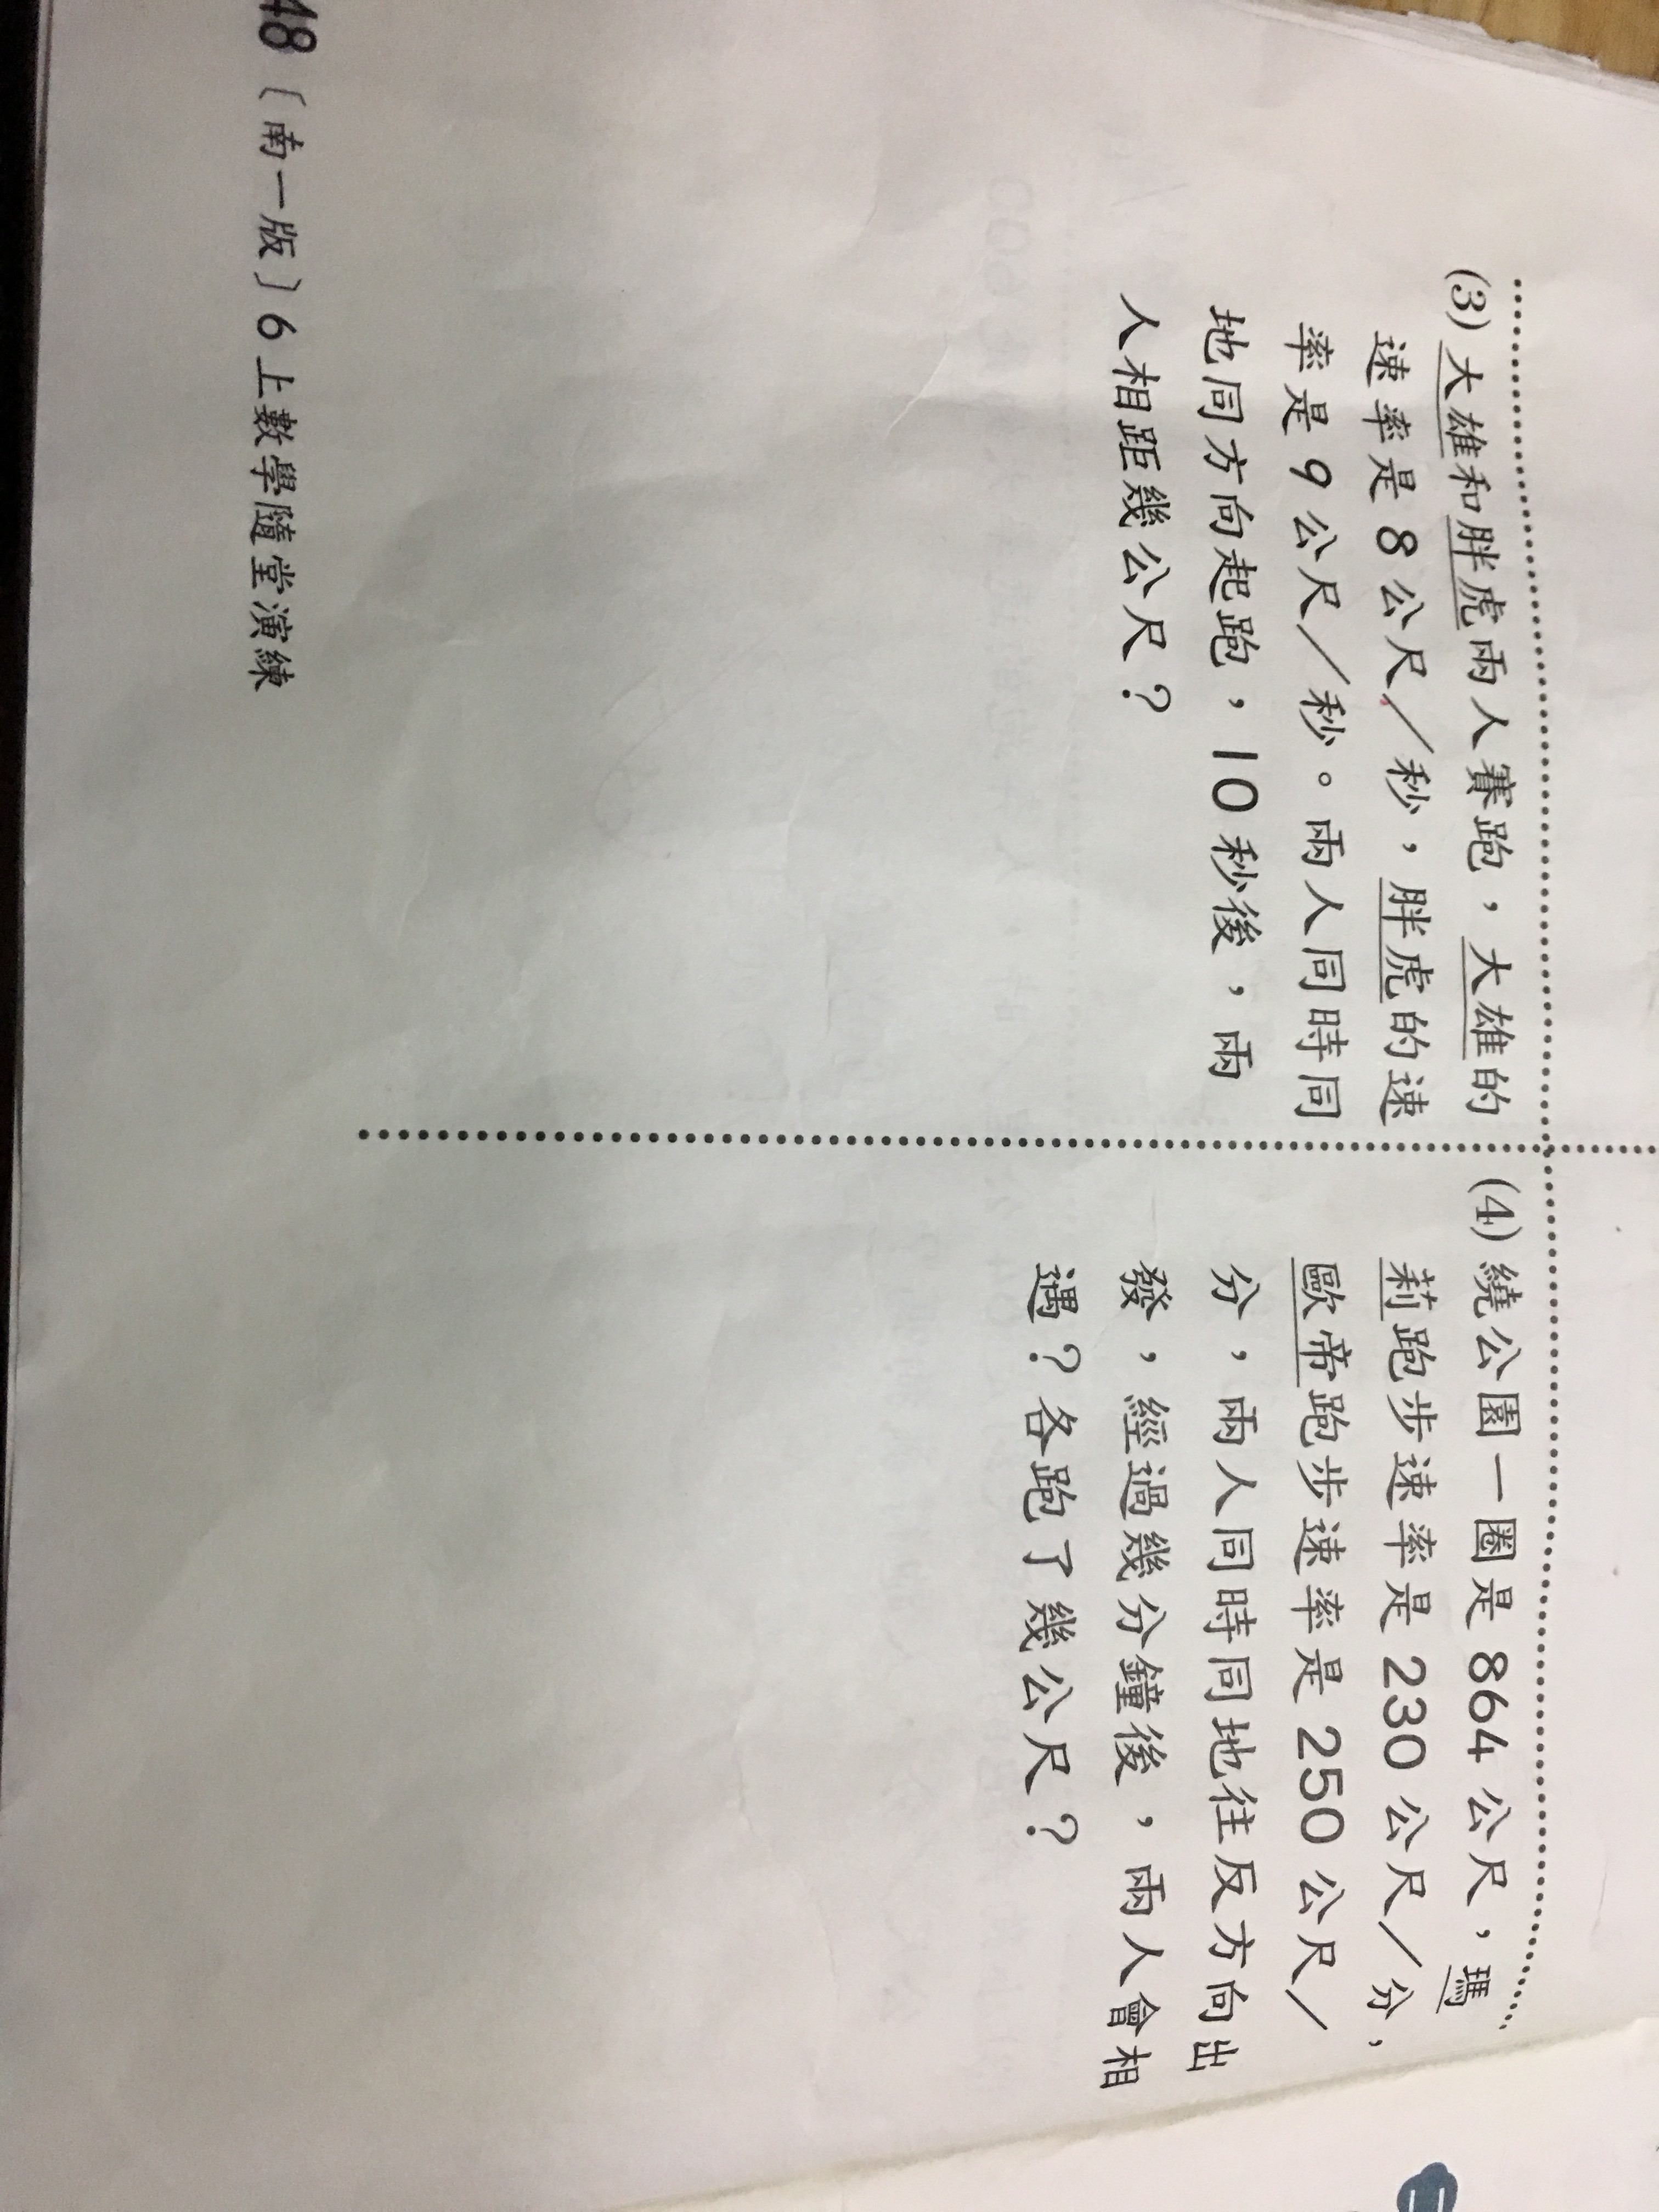 (3) 大雄和胖虎兩人賽跑，大雄的
速率是 8 公尺／秒，胖虎的速
率是 9 公尺／秒。兩人同時同
地同方向起跑，10 秒後，兩
人相距幾公尺？
(4) 繞公園一圈是 864 公尺，瑪
莉跑步速率是 230 公尺／分，
歐帝跑步速率是 250 公尺／
分，兩人同時同地往反方向出
發，經過幾分鐘後，兩人會相
遇？各跑了幾公尺？
48〔南一版〕6 上數學隨堂演練